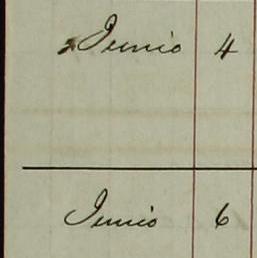 Junio 4
Junio 6